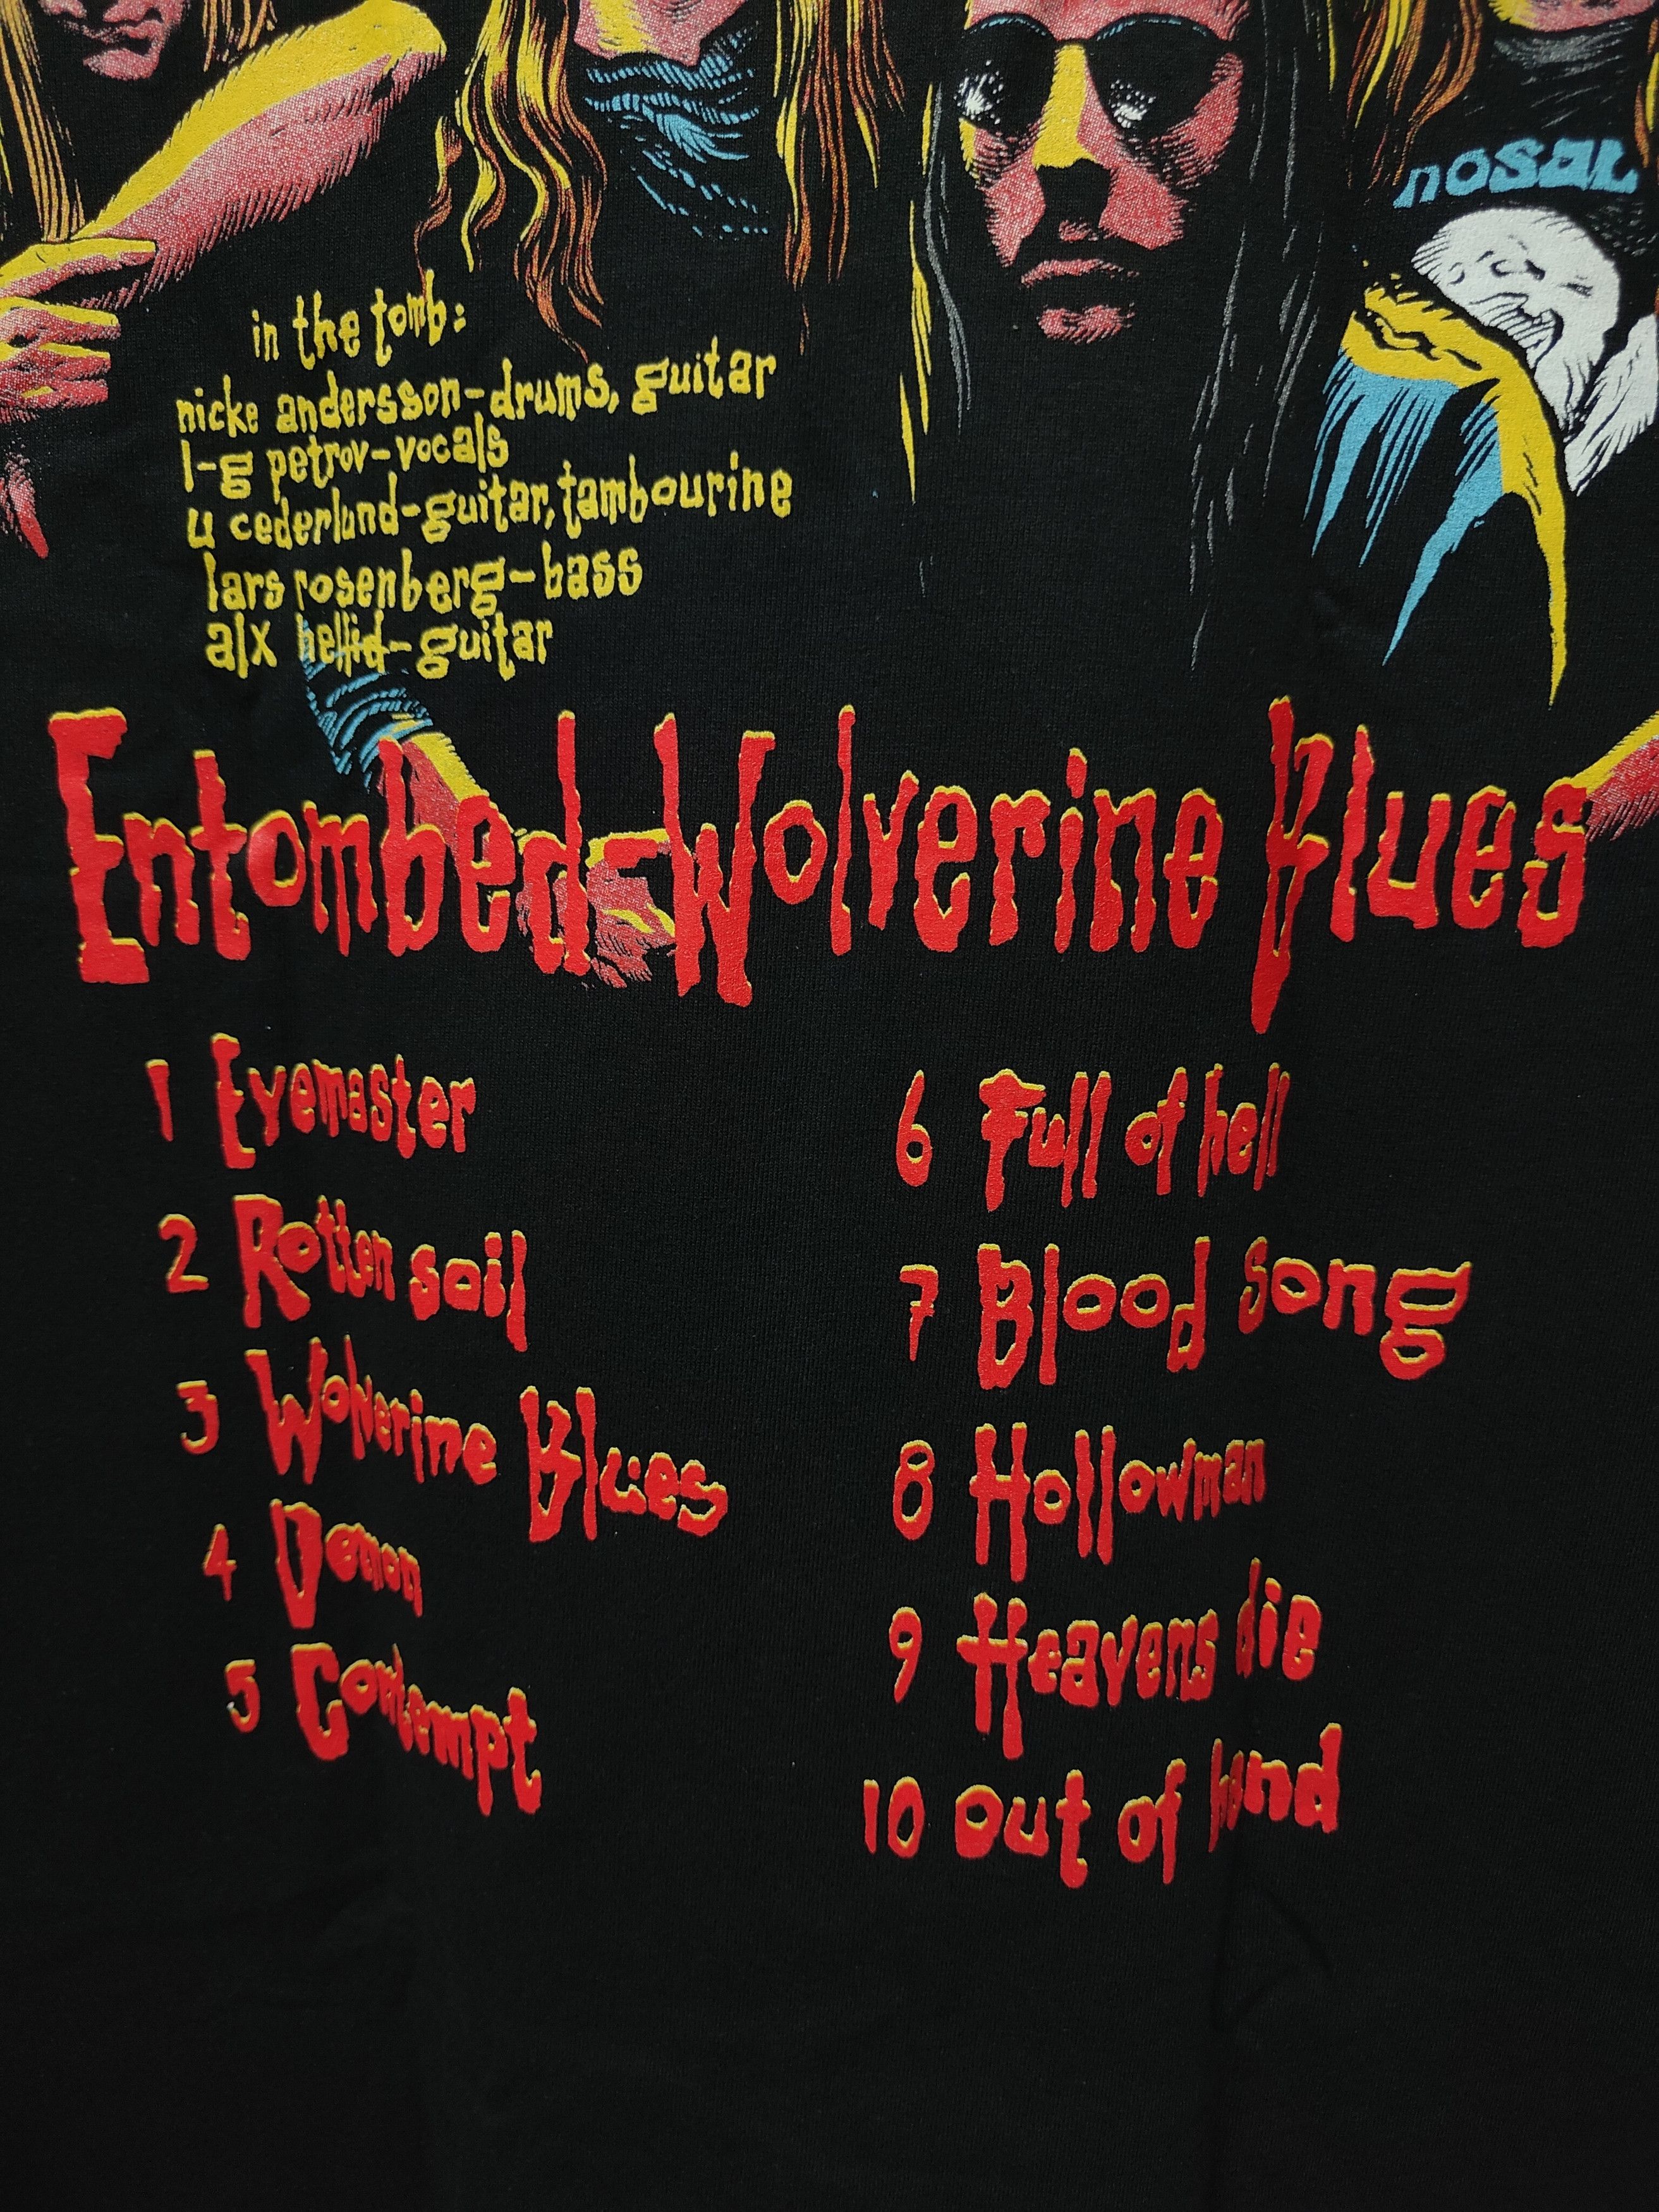 nosal
in the tomb:
nicke andersson-drums, guitar
l-g petrov-vocals
u cederlund-guitar, tambourine
lars rosenberg-bass
alx hellid-guitar
Entombed-Wolverine Blues
1 Eyemaster
2 Rotten soil
3 Wolverine Blues
4 Demon
5 Contempt
6 Full of hell
7 Blood song
8 Hollowman
9 Heavens die
10 out of hand